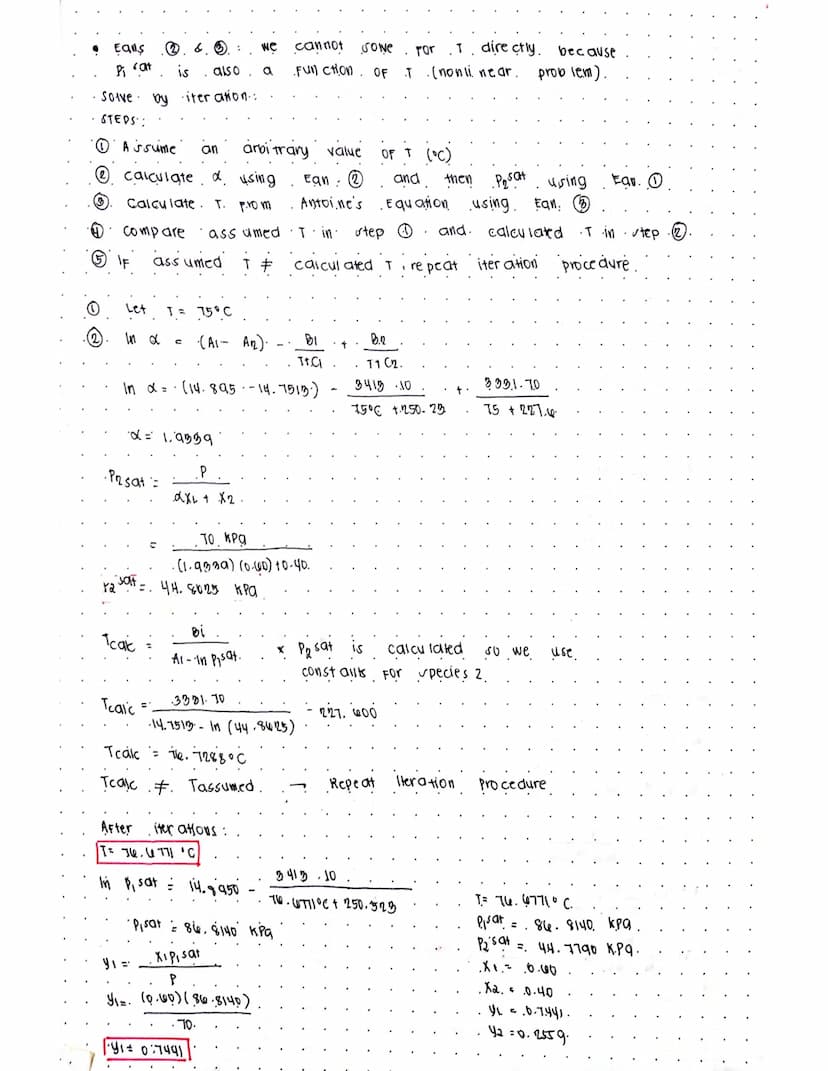 • Eqns ② & ③: we cannot solve for T directly because
P₁sat is also a function OF T (nonlinear problem).
Solve by iteration:
STEPS:
① Assume an arbitrary value OF T (°C)
② calculate α using Eqn. ② and then P₂sat using Eqn. ①
③ Calculate T from Antoine's Equation using Eqn. ③
④ compare assumed T in step ① and calculated T in step ②.
⑤ IF assumed T ≠ calculated T, repeat iteration procedure.
① Let T = 75°C
② ln α = (A1 - A2) - B1/T+C1 + B2/T+C2
ln α = (14.895 - 14.7513) - 3413.10/75°C + 250.23 + 3331.70/75 + 227.6
α = 1.9333
P₂sat = P/αx₁ + x₂
= 70 kPa/(1.9333)(0.60)+0.40
P₂sat = 44.8025 kPa
Tcalc = Bi/A1 - ln P₁sat * P₂sat is calculated so we use
constants For species 2
Tcalc = 3331.70/14.7513 - ln (44.8425) - 227.600
Tcalc = 76.7288°C
Tcalc ≠ Tassumed → Repeat Iteration Procedure
After iterations:
T = 76.6771 °C
ln P₁sat = 14.8950 - 3413.10/76.6771°C + 250.523
P₁sat = 86.8140 kPa
y₁ = x₁P₁sat/P
y₁ = (0.60)(86.8140)/70
y₁ = 0.7441
T = 76.6771°C
P₁sat = 86.8140 kPa
P₂sat = 44.7790 kPa
x₁ = 0.60
x₂ = 0.40
y₁ = 0.7441
y₂ = 0.2559